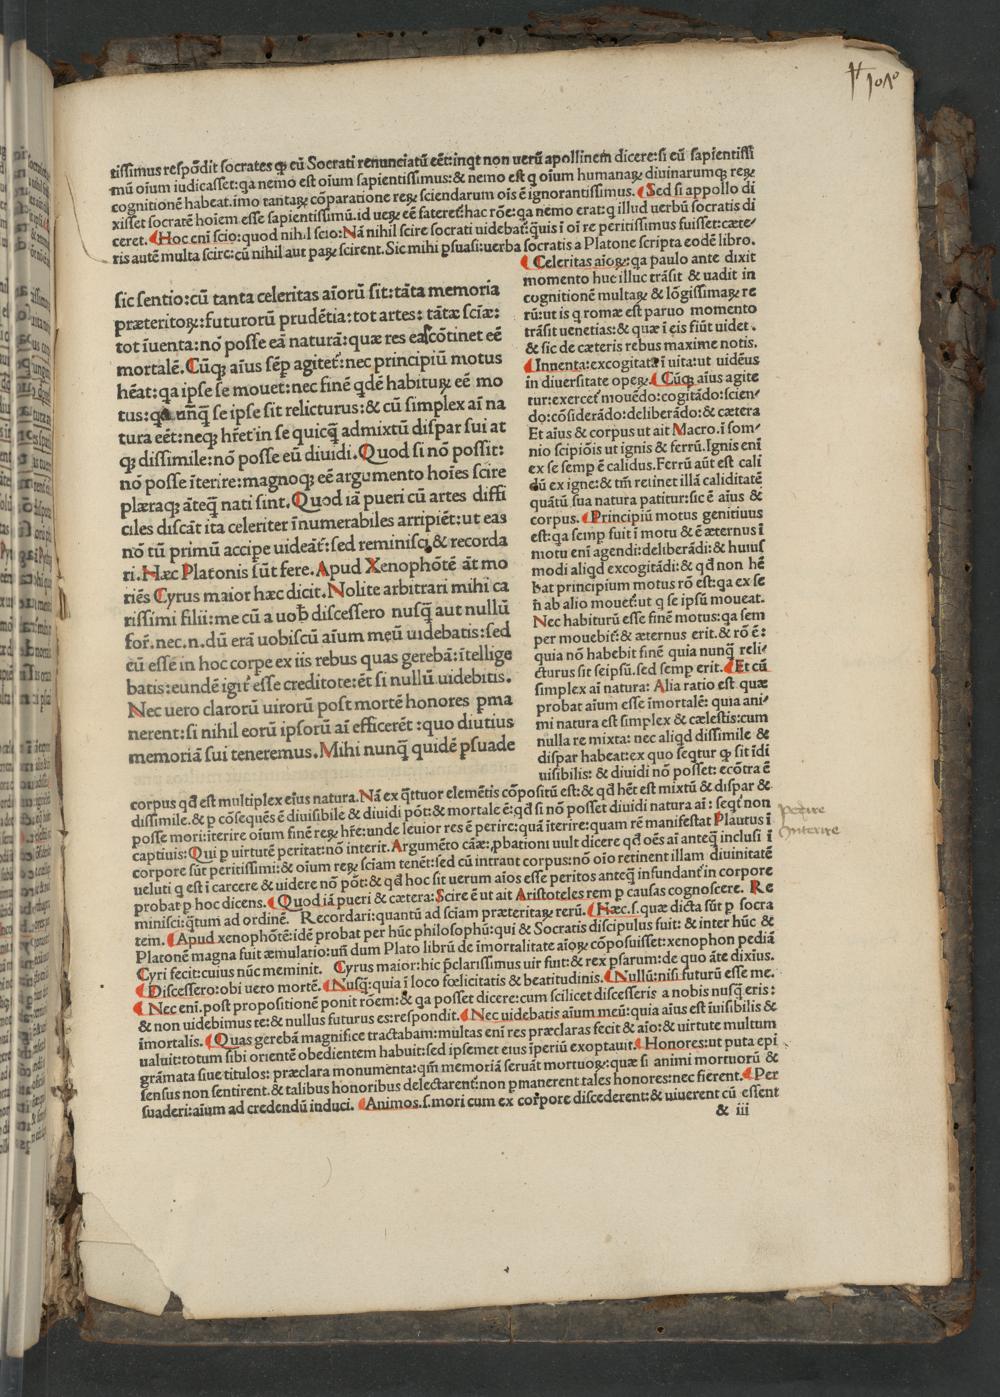 tissimus respõdit socrates qꝫ eũ Socrati renunciatũ eẽt:inqt non uerũ apollinem dicere:si eũ sapientissi
mũ oium iudicasset:qa nemo est oium sapientissimus:& nemo est q oium humanaꝝ diuinarumqꝫ reꝝ
cognitionẽ habeat.imo tantaꝝ cõparatione reꝝ sciendarum ois ẽ ignorantissimus. Sed si appollo di
xisset socratẽ hoiem esse sapientissimũ.id ueꝝ eẽ fateret̃:hac rõe:qa nemo erat:q illud uerbũ socratis di
ceret. Hoc enĩ scio:quod nihil scio:Nã nihil scire socrati uidebat̃:quis ĩ oĩ re peritissimus fuisset:cæte/
ris autẽ multa scire:cũ nihil aut paꝝ scirent. Sic mihi ꝑsuasi:uerba socratis a Platone scripta eodẽ libro.
sic sentio:cũ tanta celeritas aĩorũ sit:tãta memoria
præteritoꝝ:futurorũ prudẽtia:tot artes: tãtæ scĩæ:
tot ĩuenta:nõ posse eã naturã:quæ res eas cõtinet eẽ
mortalẽ.Cũqꝫ aĩus sẽp agitet̃:nec principiũ motus
hẽat:qa ipse se mouet:nec finẽ qdẽ habituꝝ eẽ mo
tus:qa unq̃ se ipse sit relicturus:& cũ simplex aĩ na
tura eẽt:neqꝫ hr̃et in se quicq̃ admixtũ dispar sui at
qꝫ dissimile:nõ posse eũ diuidi.Quod si nõ possit:
nõ posse ĩterire:magnoqꝫ eẽ argumento hoĩes scire
plæraqꝫ ãteq̃ nati sint.Quod iã pueri cũ artes diffi
ciles discãt ita celeriter ĩnumerabiles arripiẽt:ut eas
nõ tũ primũ accipe uideãt̃:sed reminisci & recorda
ri.Hæc Platonis sũt fere.Apud Xenophõtẽ ãt mo
riẽs Cyrus maior hæc dicit.Nolite arbitrari mihi ca
rissimi filii:me cũ a uob̃ discessero nusq̃ aut nullũ
for̃.nec.n.dũ erã uobiscũ aĩum meũ uidebatis:sed
eũ esse in hoc corpe ex iis rebus quas gerebã:ĩtellige
batis:eundẽ igit̃ esse creditote:ẽt si nullũ uidebitis.
Nec uero clarorũ uirorũ post mortẽ honores ꝑma
nerent:si nihil eorũ ipsorũ aĩ efficerẽt :quo diutius
memoriã sui teneremus.Mihi nunq̃ quidẽ ꝑsuade
Celeritas aĩoꝝ:qa paulo ante dixit
momento huc illuc trãsit & uadit in
cognitionẽ multaꝝ & lõgissimaꝝ re
rũ:ut is q romæ est paruo momento
trãsit uenetias:& quæ ĩ eis fiũt uidet.
& sic de cæteris rebus maxime notis.
Inuenta:excogitata ĩ uita:ut uidẽus
in diuersitate opeꝝ. Cũqꝫ aĩus agite
tur:exercet̃ mouẽdo:cogitãdo:scien/
do:cõsiderãdo:deliberãdo:& cætera
Et aĩus & corpus ut ait Macro.ĩ som/
nio scipiõis ut ignis & ferrũ.Ignis enĩ
ex se semp ẽ calidus.Ferrũ aũt est cali
dũ ex igne:& tm̃ retinet illã caliditatẽ
quãtũ sua natura patitur:sic ẽ aĩus &
corpus. Principiũ motus genitiuus
est:qa semp fuit ĩ motu & ẽ æternus ĩ
motu enĩ agendi:deliberãdi:& huius
modi aliqd excogitãdi:& qd non hẽ
bat principium motus rõ est:qa ex se
ñ ab alio mouet̃:ut q se ipsũ moueat.
Nec habiturũ esse finẽ motus:qa sem
per mouebit̃:& æternus erit.& rõ ẽ:
quia nõ habebit finẽ quia nunq̃ reli/
cturus sit seipsũ.sed semp erit. Et cũ
simplex aĩ natura: Alia ratio est quæ
probat aĩum esse ĩmortalẽ: quia ani/
mi natura est simplex & cælestis:cum
nulla re mixta: nec aliqd dissimile &
dispar habeat:ex quo seqtur qꝫ sit ĩdi
uisibilis: & diuidi nõ posset: ecõtra ẽ
corpus qd est multiplex eius natura.Nã ex q̃ttuor elemẽtis cõpositũ est:& qd hẽt est mixtũ & dispar &
dissimile.& ꝑ cõsequẽs ẽ diuisibile & diuidi põt:& mortale ẽ:qd si nõ posset diuidi natura aĩ: seqr̃ non
posse mori:ĩterire oĩum finẽ reꝝ hr̃e:unde leuior res ẽ perire:quã ĩterire:quam rẽ manifestat Plautus ĩ
captiuis:Qui ꝑ uirtutẽ peritat:nõ interit.Argumẽto cãæ:ꝓbationi uult dicere qd oẽs aĩ anteq̃ inclusi ĩ
corpore sũt peritissimi:& oĩum reꝝ sciam tenẽt:sed cũ intrant corpus:nõ oĩo retinent illam diuinitatẽ
ueluti q est ĩ carcere & uidere nõ põt:& qd hoc sit uerum aĩos esse peritos anteq̃ infundant̃ in corpore
probat ꝑ hoc dicens. Quod iã pueri & cætera:Scire ẽ ut ait Aristoteles rem ꝑ causas cognoscere. Re
minisci:q̃tum ad ordinẽ. Recordari:quantũ ad sciam præteritaꝝ rerũ. Hæc.s.quæ dicta sũt ꝑ socra
tem. Apud xenophõtẽ:idẽ probat per hũc philosophũ:qui & Socratis discipulus fuit: & inter hũc &
Platonẽ magna fuit æmulatio:uñ dum Plato librũ de ĩmortalitate aĩoꝝ cõposuisset:xenophon pediã
Cyri fecit:cuius nũc meminit. Cyrus maior:hic p̃clarissimus uir fuit:& rex ꝑsarum:de quo ãte dixĩus.
Discessero:obi uero mortẽ. Nusq̃:quia ĩ loco fœlicitatis & beatitudinis. Nullũ:nisi futurũ esse me.
Nec enĩ.post propositionẽ ponit rõem:& qa posset dicere:cum scilicet discesseris a nobis nusq̃ eris:
& non uidebimus te:& nullus futurus es:respondit. Nec uidebatis aĩum meũ:quia aĩus est ĩuisibilis &
ĩmortalis. Quas gerebã magnifice tractabam:multas enĩ res præclaras fecit & aĩo:& uirtute multum
ualuit:totum sibi orientẽ obedientem habuit:sed ipsemet eius ĩperiũ exoptauit. Honores:ut puta epi
grãmata siue titulos: præclara monumenta:qm̃ memoriã seruãt mortuoꝝ:quæ si animi mortuorũ &
sensus non sentirent.& talibus honoribus delectarent̃:non ꝑmanerent tales honores:nec fierent. Per
suaderi:aĩum ad credendũ induci. Animos.s.mori cum ex corpore discederent:& uiuerent cũ essent
& iii
perire
interire